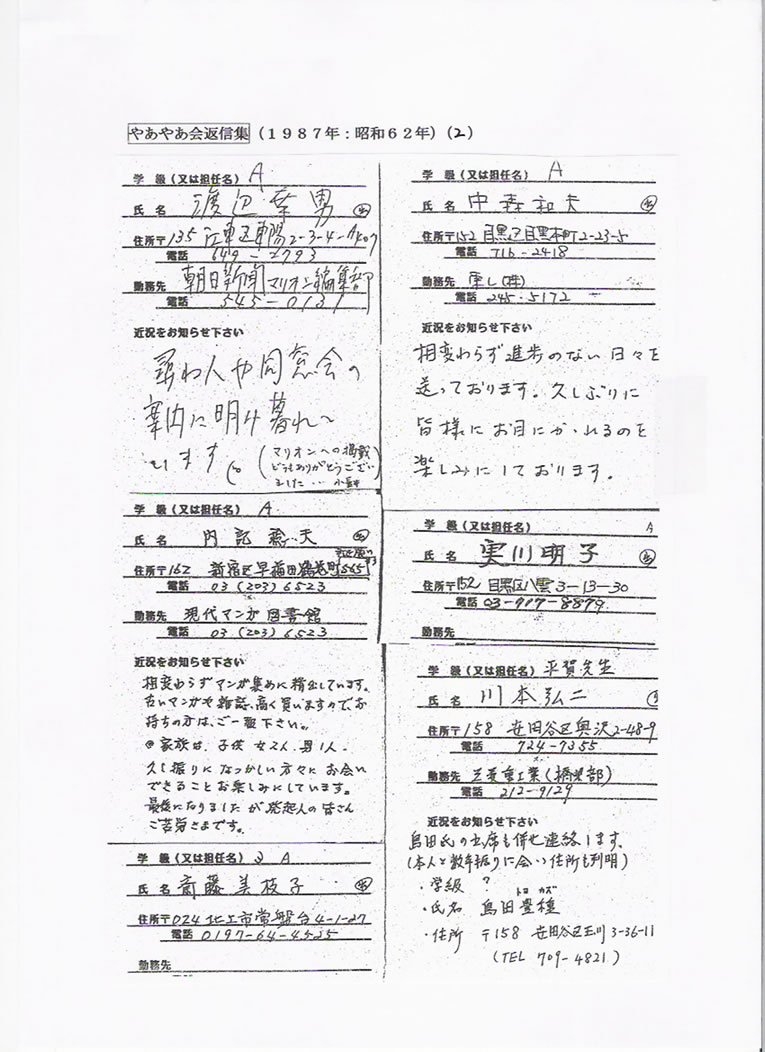 やあやあ会返信集（１９８７年：昭和６２年）（２）
学　級（又は担任名） A
氏　名 渡辺 男
住所〒135 江東区東陽2-3-4-A407
電話 649-2793
勤務先 朝日新聞マリオン編集部
電話 545-0131
近況をお知らせ下さい
尋ね人や同窓会の
案内に明け暮れて
います。
（マリオンへの掲載
どうもありがとうござい
ました…
学　級（又は担任名） A
氏　名 内記 稔夫
住所〒162 新宿区早稲田鶴巻町565
電話 03（203）6523
勤務先 現代マンガ図書館
電話 03（203）6523
近況をお知らせ下さい
相変わらずマンガ集めに精出しています。
古いマンガや雑誌、高く買いますので、お
持ちの方は、ご一報下さい。
◎家族は、子供 女2人、男1人、
久し振りになつかしい方々にお会い
できることお楽しみにしています。
最後になりましたが発起人の皆さん
ご苦労さまです。
学　級（又は担任名） A
氏　名 斎藤美枝子
住所〒024 北上市常盤台4-1-27
電話 0197-64-4525
勤務先
学　級（又は担任名） A
氏　名 中森和夫
住所〒152 目黒区目黒本町2-23-5
電話 716-2418
勤務先 東レ（株）
電話 245-5172
近況をお知らせ下さい
相変わらず進歩のない日々を
送っております。久しぶりに
皆様にお目にかゝれるのを
楽しみにしております。
学　級（又は担任名） A
氏　名 実川明子
住所〒152 目黒区八雲3-13-30
電話 03-717-8879
勤務先
学　級（又は担任名） 平賀先生
氏　名 川本弘二
住所〒158 世田谷区奥沢2-48-9
電話 724-7355
勤務先 三菱重工業（橋梁部）
電話 212-9129
近況をお知らせ下さい
島田氏の出席も併せ連絡します。
（本人と数年振りに会い住所も判明）
・学級 ？
トヨ カズ
・氏名 島田豊穂
・住所 〒158 世田谷区玉川3-36-11
（TEL 709-4821）